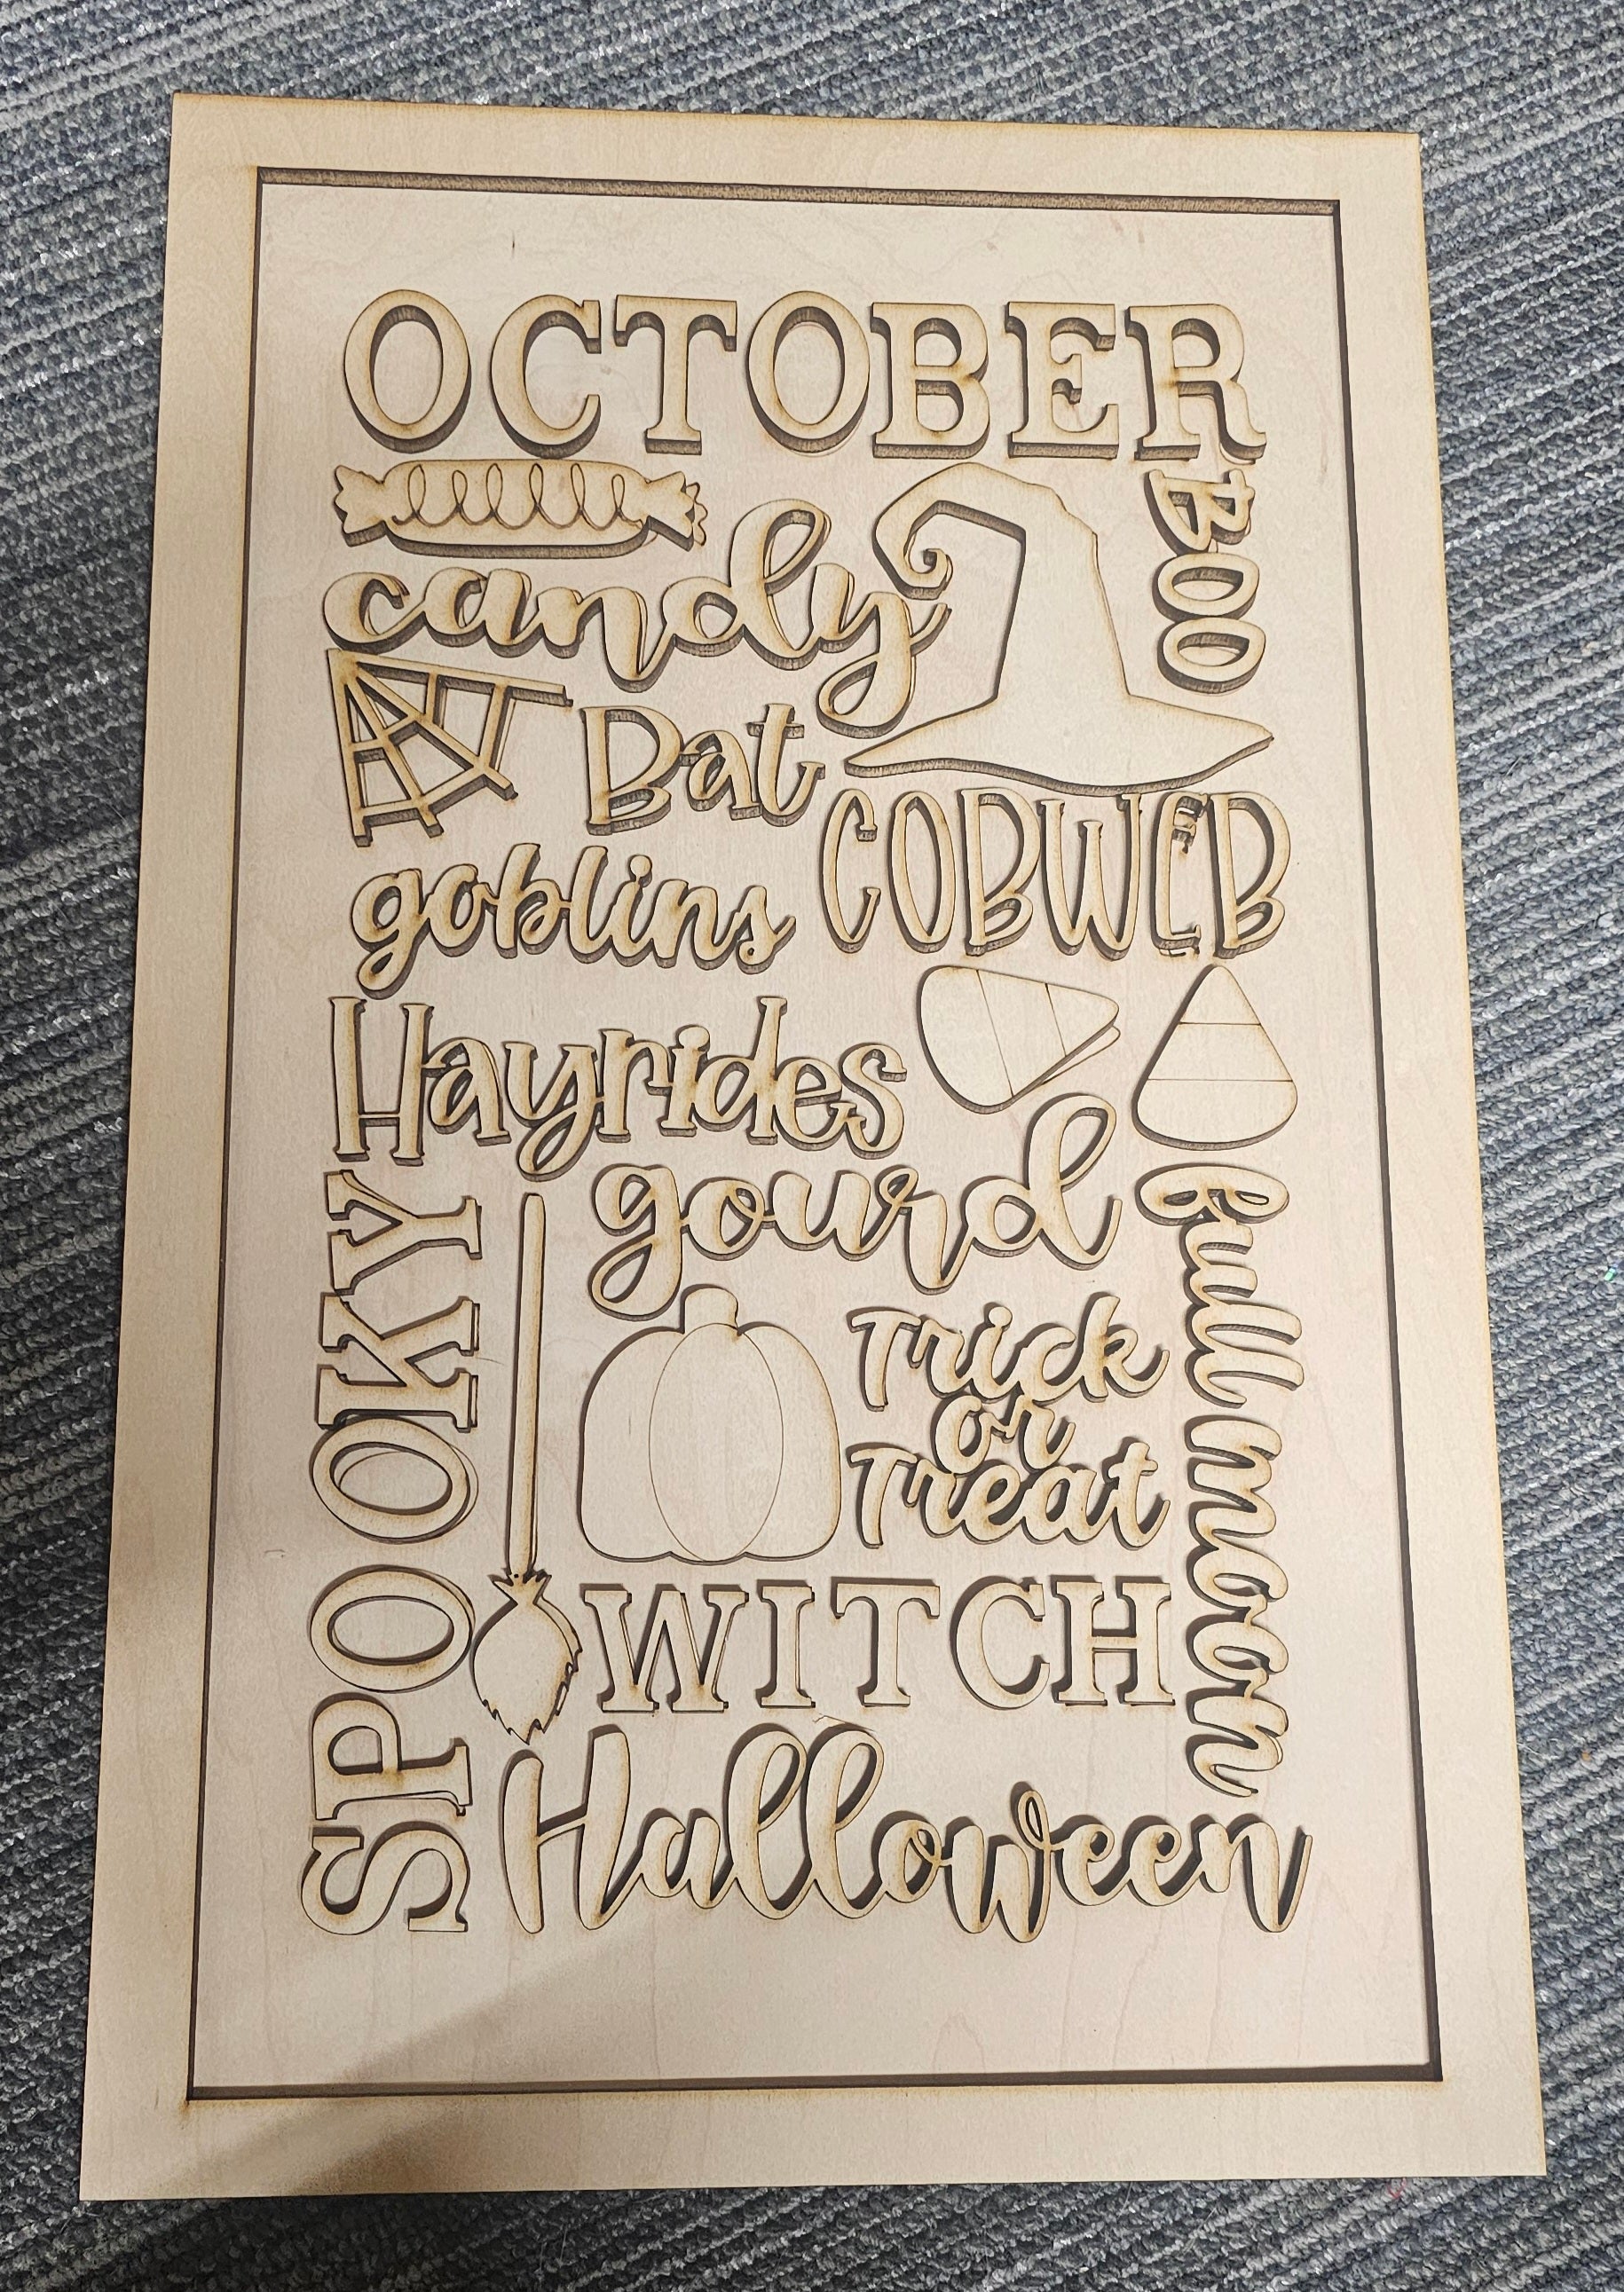 OCTOBER
candy
BOO
Bat
COBWEB
goblins
Hayrides
gourd
SPOOKY
Trick
or
Treat
full moon
WITCH
Halloween